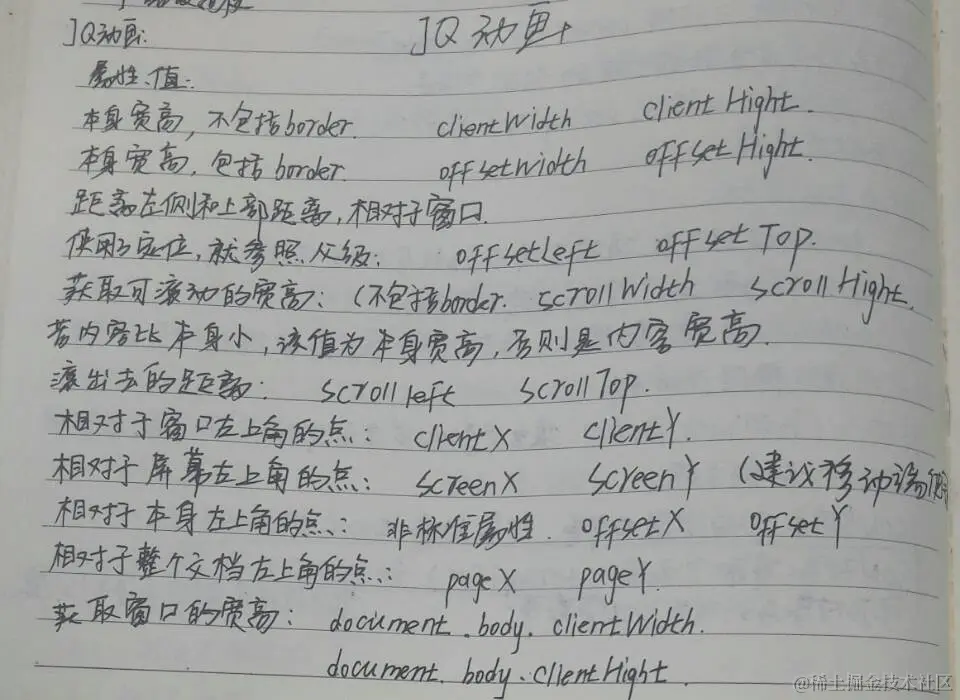 JQ动画: JQ动画
属性、值:
本身宽高,不包括border. clientWidth clientHight.
本身宽高,包括border. offsetWidth offsetHight.
距离左侧和上部距离,相对于窗口.
使用了定位,就参照父级: offsetLeft offsetTop.
获取可滚动的宽高:(不包括border. scrollWidth scrollHight.
若内容比本身小,该值为本身宽高,否则是内容宽高.
滚出去的距离: scrollleft scrollTop.
相对于窗口左上角的点: clientX clientY.
相对于屏幕左上角的点: screenX screenY (建议移动端使
相对于本身左上角的点: 非标准属性. offsetX offsetY
相对于整个文档左上角的点: pageX pageY.
获取窗口的宽高: document.body.clientWidth.
document.body.clientHight.
@稀土掘金技术社区